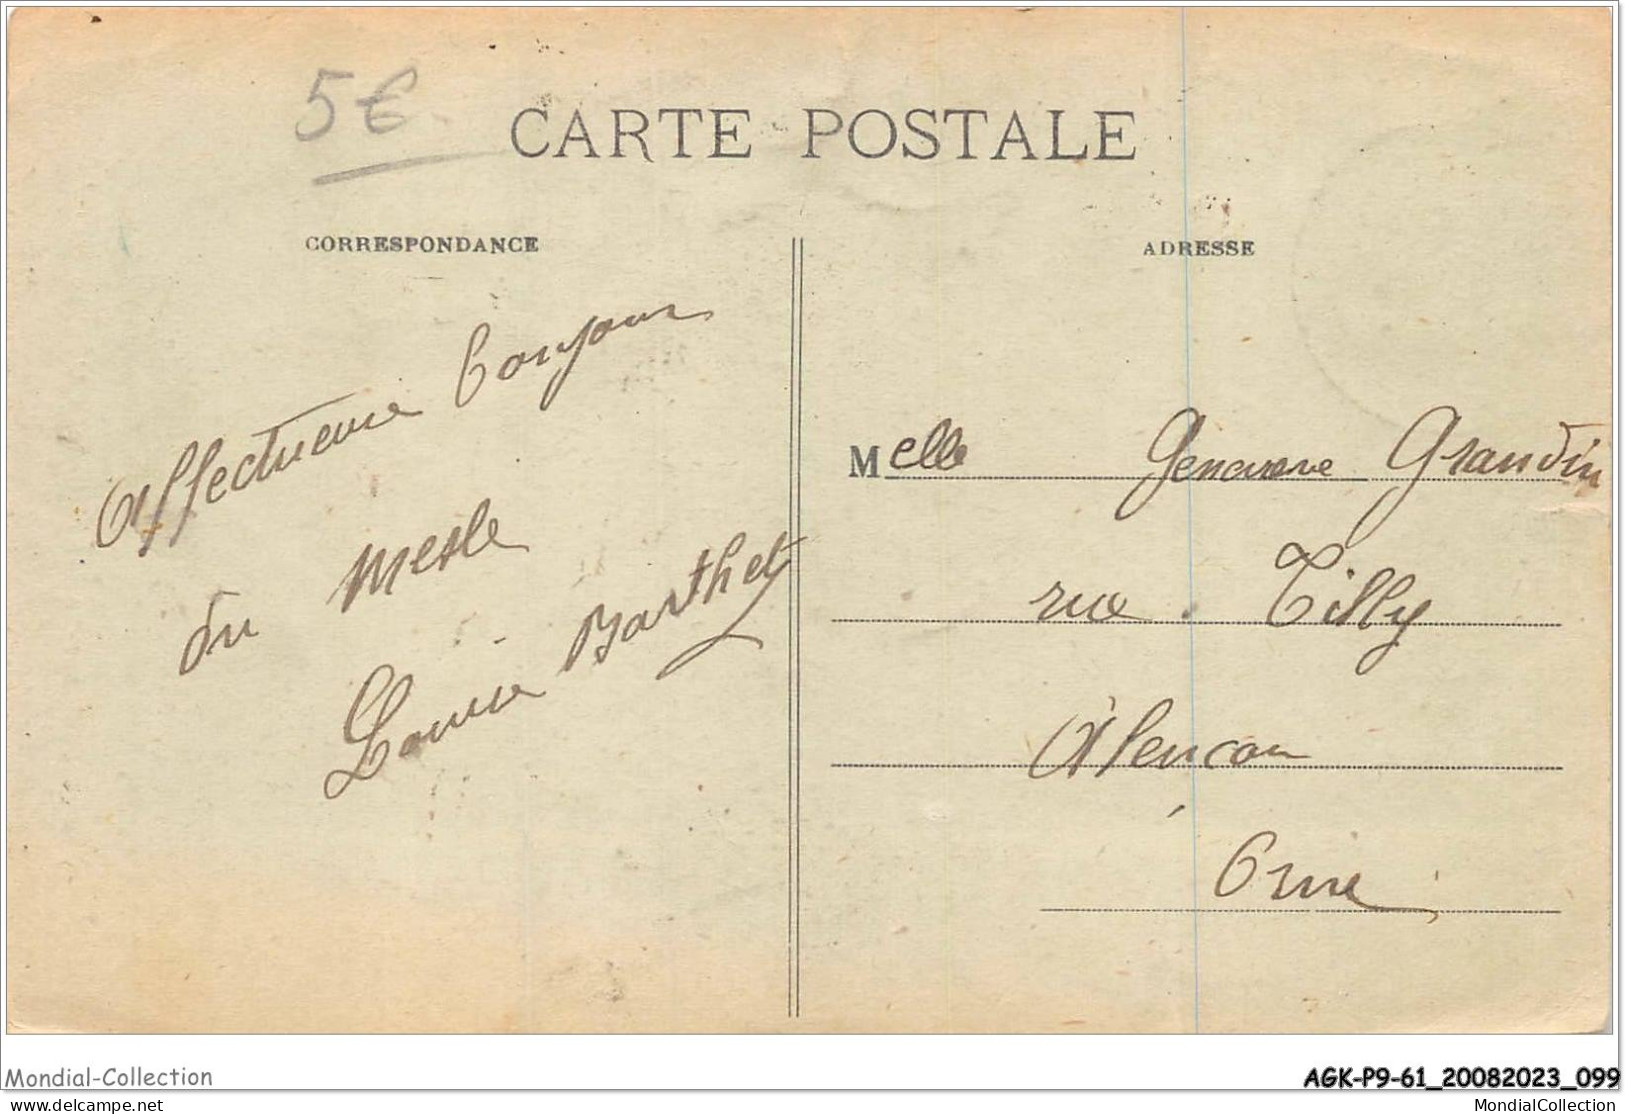 5€
CARTE POSTALE
CORRESPONDANCE
Affectueux bonjour
du Mesle
Louise Barthet
ADRESSE
Melle Genevieve Grandin
rue Tilly
Alençon
Orne
Mondial-Collection
AGK-P9-61_20082023_099
www.delcampe.net
MondialCollection